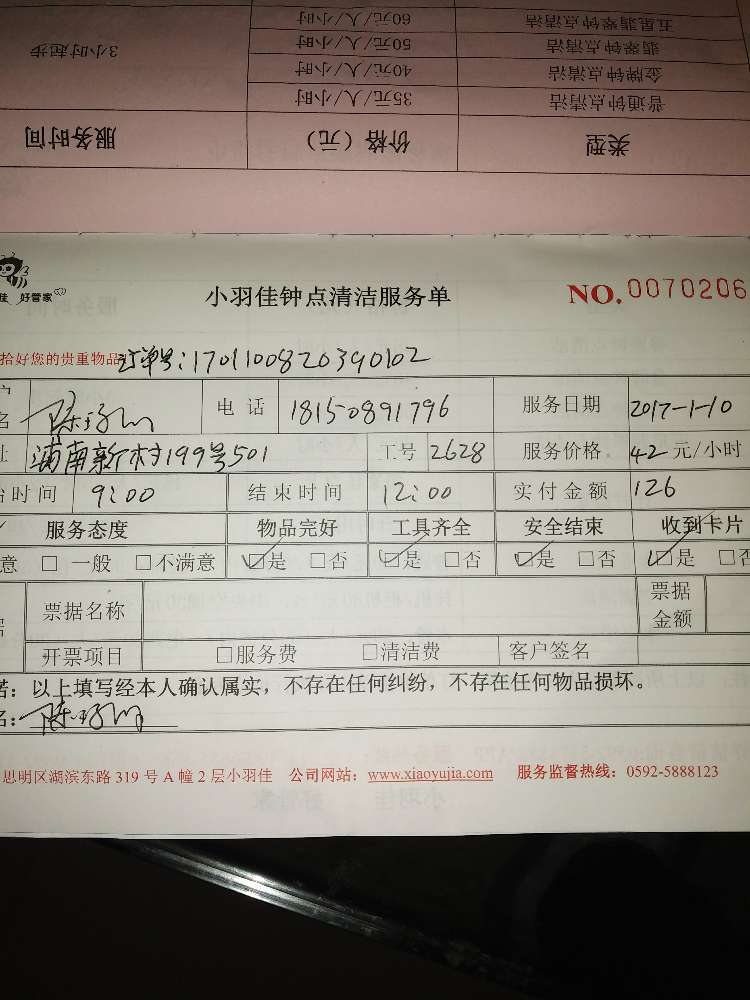 五星翡翠钟点清洁 60元/人/小时
翡翠钟点清洁 50元/人/小时 3小时起步
金牌钟点清洁 40元/人/小时
普通钟点清洁 35元/人/小时
类型 价格（元） 服务时间
佳 好管家
小羽佳钟点清洁服务单
NO.0070206
拾好您的贵重物品 订单号:1701100820390102
名 电话 18150891796 服务日期 2017-1-10
址 浦南新村199号501 工号 2628 服务价格 42元/小时
始时间 9:00 结束时间 12:00 实付金额 126
服务态度 物品完好 工具齐全 安全结束 收到卡片
意 □一般 □不满意 □是 □否 □是 □否 □是 □否 □是 □否
票据名称 票据金额
开票项目 □服务费 □清洁费 客户签名
诺：以上填写经本人确认属实，不存在任何纠纷，不存在任何物品损坏。
名:
思明区湖滨东路319号A幢2层小羽佳 公司网站：www.xiaoyujia.com 服务监督热线：0592-5888123